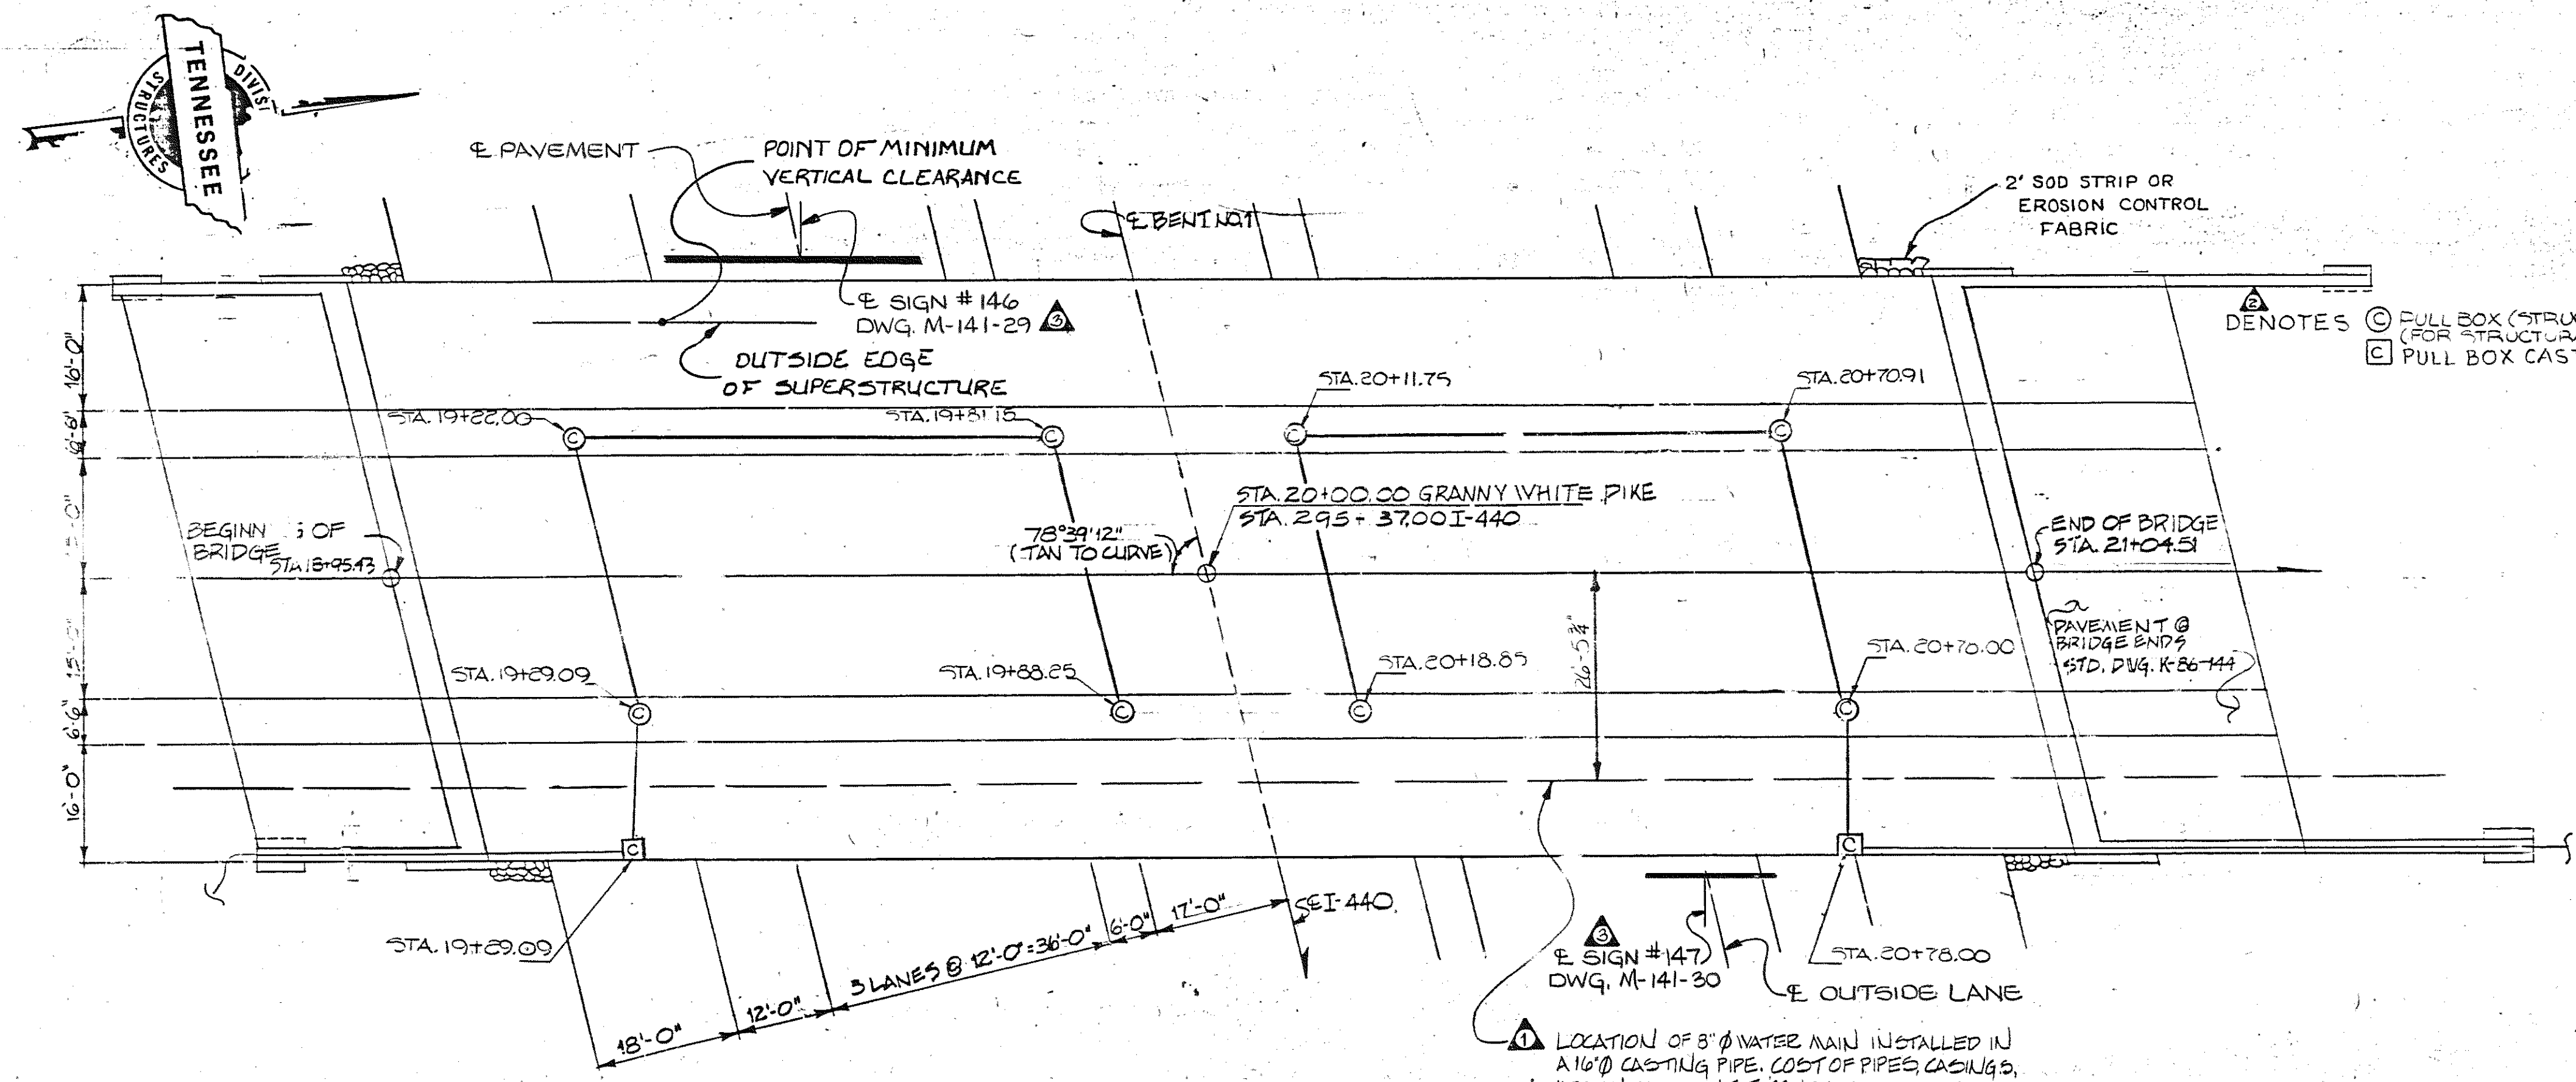 TENNESSEE
STRUCTURES
℄ PAVEMENT
POINT OF MINIMUM
VERTICAL CLEARANCE
℄ BENT NO. 1
2' SOD STRIP OR
EROSION CONTROL
FABRIC
℄ SIGN # 146
DWG. M-141-29 3
OUTSIDE EDGE
OF SUPERSTRUCTURE
2
DENOTES Ⓒ PULL BOX
C PULL BOX
STA. 19+22.00
STA. 19+81.15
STA. 20+11.75
STA. 20+70.91
16'-0"
STA. 20+00.00 GRANNY WHITE PIKE
STA. 295+37.00 I-440
78°39'12"
(TAN TO CURVE)
OF
BRIDGE
STA 18+95.43
END OF BRIDGE
STA. 21+04.51
15'-0"
26'-5¾"
PAVEMENT @
BRIDGE ENDS
STD. DWG. K-86-144
STA. 19+29.09
STA. 19+88.25
STA. 20+18.85
STA. 20+78.00
6'-6"
16'-0"
STA. 19+29.09
18'-0"
12'-0"
3 LANES @ 12'-0" = 36'-0"
6'-0"
17'-0"
℄ I-440
3
℄ SIGN #147
DWG. M-141-30
STA. 20+78.00
℄ OUTSIDE LANE
1 LOCATION OF 8"Ø WATER MAIN INSTALLED IN
A 16"Ø CASTING PIPE. COST OF PIPES, CASINGS,